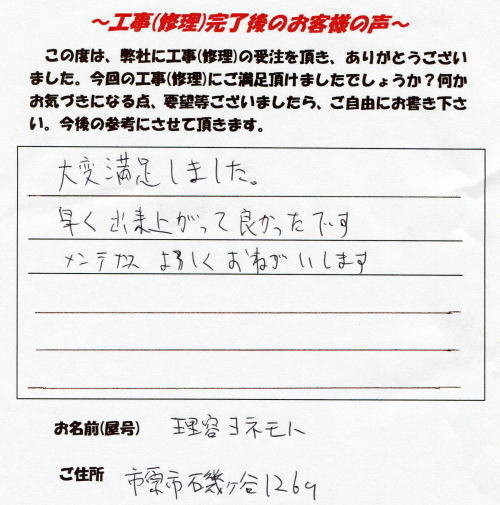 ～工事(修理)完了後のお客様の声～
この度は、弊社に工事(修理)の受注を頂き、ありがとうござい
ました。今回の工事(修理)にご満足頂けましたでしょうか？何か
お気づきになる点、要望等ございましたら、ご自由にお書き下さ
い。今後の参考にさせて頂きます。
大変満足しました。
早く出来上がって良かったです
メンテナス よろしくおねがいします
お名前(屋号) 理容ヨネモト
ご住所 市原市石磯ヶ谷1269